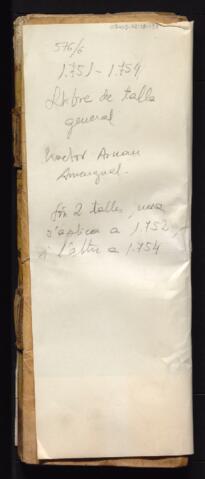 576/6
1.751 - 1.754
Llibre de talla
general
Arnau
són 2 talles, una
s'aplica a 1.752, i
l'altra a 1.754